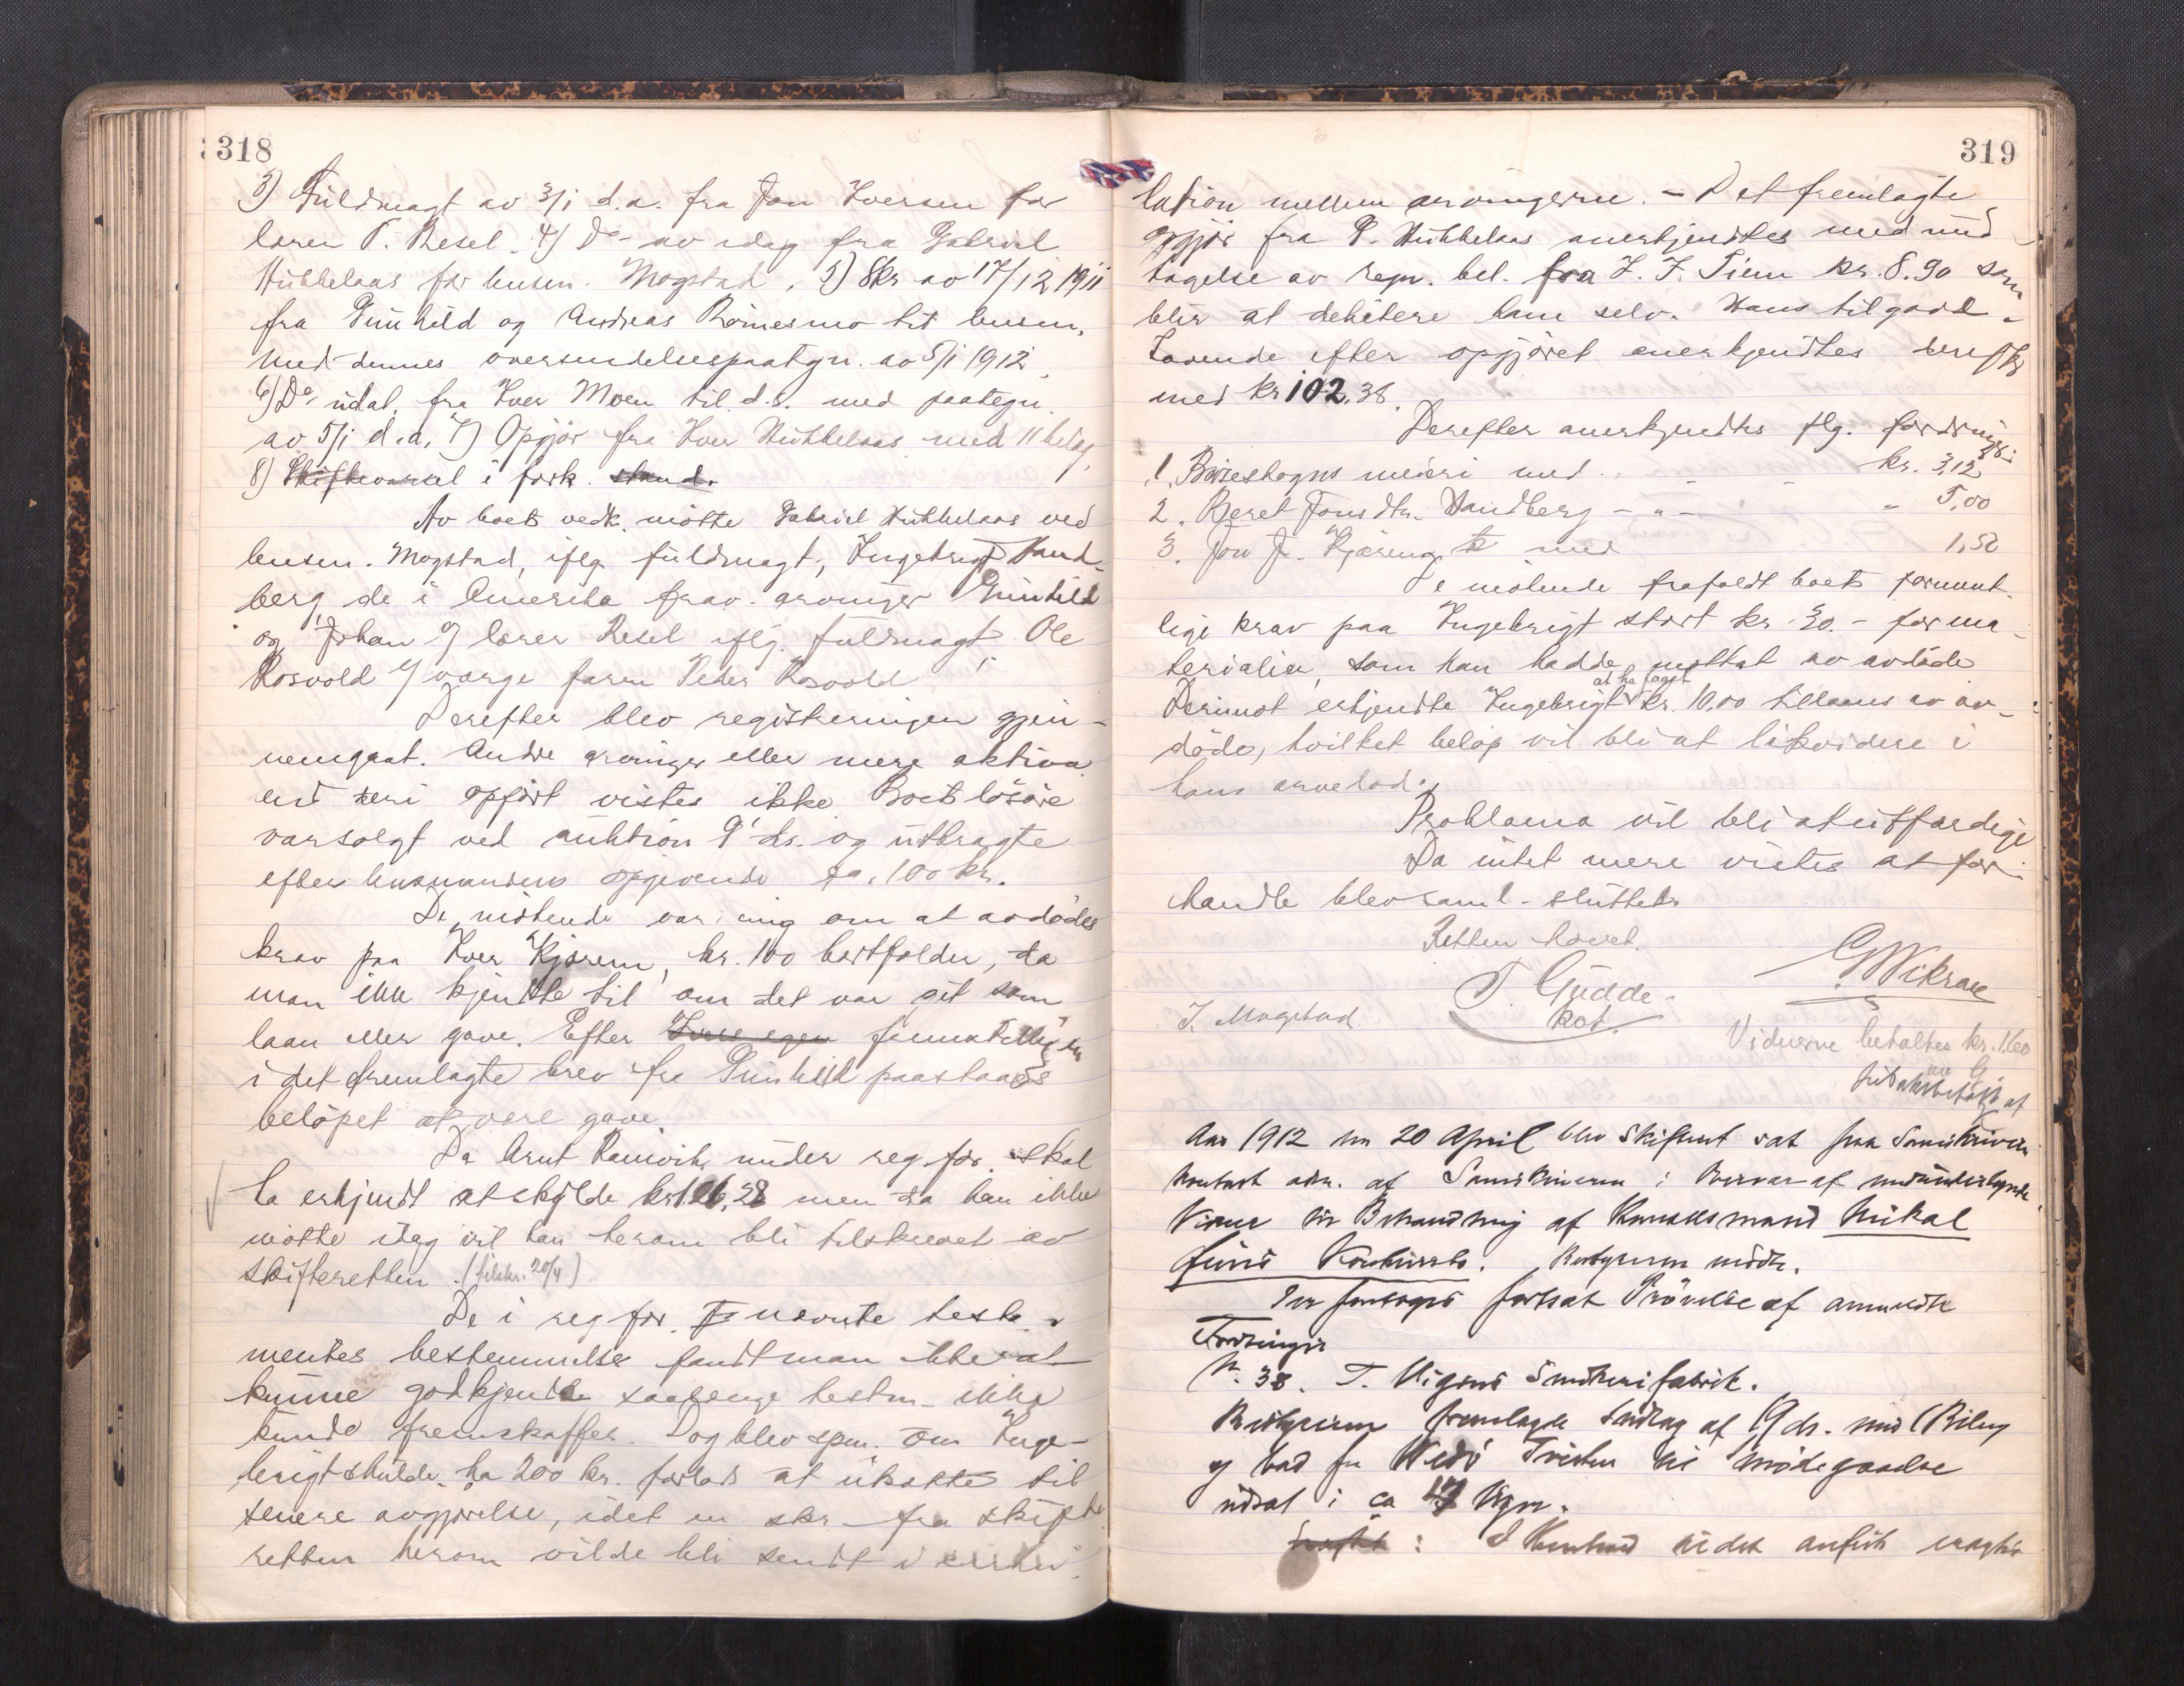 318
3) Fuldmagt av 3/1 d.a. fra Jon Iversen for
lærer T. Resel. 4) Do av idag fra Gabriel
Hukkelaas for lensm. Mogstad. 5) Skr av 17/12 1911
fra Gunhild og Andreas Römesmo til lensm.
med dennes oversendelsespaategn. av 5/1 1912.
6) Do udat. fra Iver Moen til d.s. med paategn.
av 5/1 d.a. 7) Opgjör fra Iver Hukkelaas med 11 bilag.
8) Skiftevarsel i fork. stand.
Av boets vedk. mötte Gabriel Hukkelaas ved
lensm. Mogstad, iflg. fuldmagt, Ingebrigt Hand-
berg, de i Amerika frav. arvinger Gunhild
og Johan v/ lærer Resel iflg. fuldmagt, Ole
Rosvold v/ værge faren Peder Rosvold
Derefter blev registreringen gjen-
nemgaat. Andre arvinger eller mere aktiva
end heri opfört vistes ikke. Boets lösöre
var solgt ved auktion 9' ds. og utbragte
efter lensmandens opgivende ca. 100 kr.
De mötende var enig om at avdödes
krav paa Iver Kjörem, kr. 100 bortfalder, da
man ikke kjendte til om det var git som
laan eller gave. Efter Ivers egen fremstillingen
i det fremlagte brev fra Gunhild paastaaes
belöpet at være gave.
Da Arnt Ranvik under reg. for. skal
ha erkjendt at skylde kr 126,28 men da han ikke
mötte idag vil han herom bli tilskrevet av
skifteretten. (tilskr. 20/4)
De i reg. for. nævnte testa-
mentes bestemmelse fandt man ikke at
kunne godkjendte saalænge testm. ikke
kunde fremskaffes. Dog blev spm. om Inge-
brigt skulde ha 200 kr. forlods at utsætte til
senere avgjörelse, idet en skr. fra skifte
retten herom vilde bli sendt i cirku-
319
lation mellem arvingerne. - Det fremlagte
opgjör fra I. Hukkelaas anerkjendtes med und-
tagelse av regn. bel. fra J. J. Tiem kr. 8.90 som
blir at debitere ham selv. Hans tilgode-
havende efter opgjöret anerkjendtes derefter
med kr 102.38.
Derefter anerkjendtes flg. fordringer:
1. Bæverskogens meieri med - - kr. 3,12
2. Beret Jonsdtr. Handberg - " - " 5,00
3. Jon J. Kjæreng med 1,50
De mötende frafaldt boets forment-
lige krav paa Ingebrigt stort kr. 30.- for ma-
terialier, som han hadde mottat av avdöde
Derimot erkjendte Ingebrigt at ha faaet kr. 10,00 tillaans av av-
döde, hvilket belöp vil bli at likvidere i
hans arvelod.
Proklama vil bli at utfærdige
Da intet mere vistes at for-
handle blev saml. sluttet.
Retten hævet.
G Wikran
T. Gudde
Rot.
J. Mogstad
Vidnerne betaltes kr. 1.60
Aar 1912 den 20 April blev Skifteret sat paa Sorenskriver
kontoret adm. af Sorenskriveren i Overvær af medundertegnede
Vidner til Behandling af Handelsmand Mikal
Konkursbo. Bestyreren mödte.
Der foretoges fortsat Prövelse af anmeldte
Fordringer
No. 38. T. Snekkerifabrik.
Bestyreren fremlagde Indlæg af 19 ds. med 1 Bilag
og bad for Tvisten til imödegaaelse
udsat i ca 14 Dage.